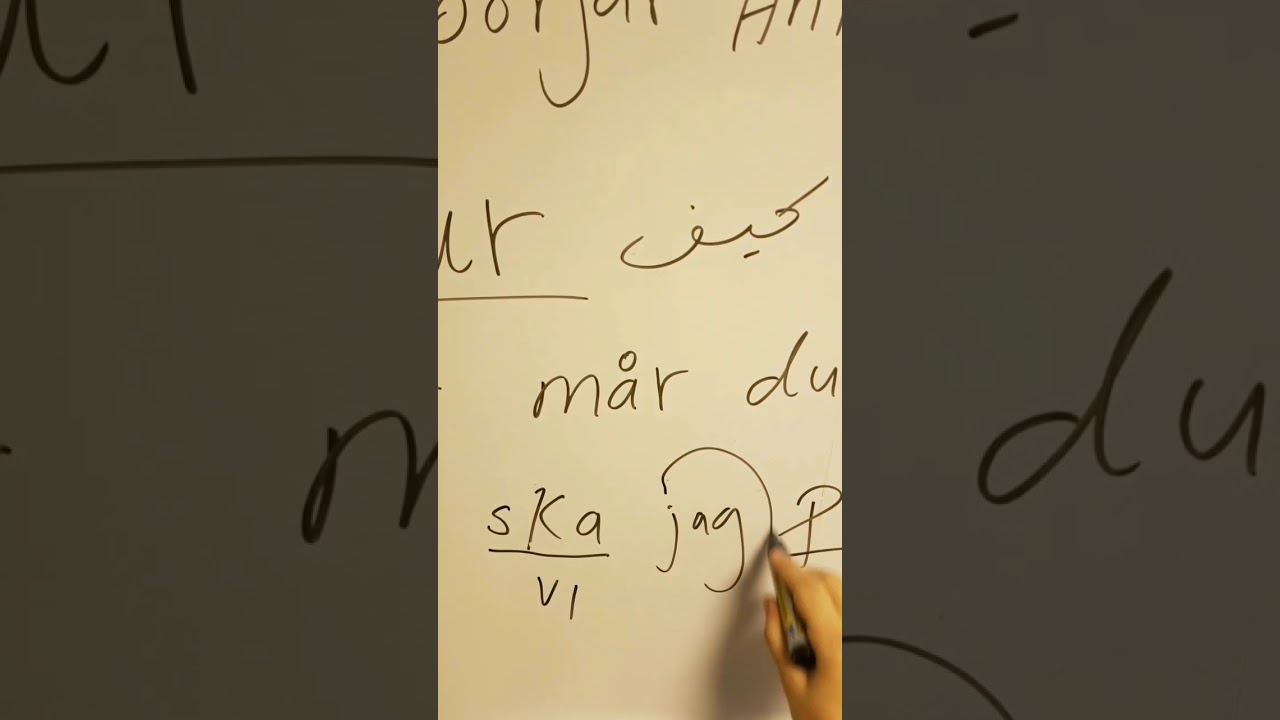 börjar
ur كيف
mår du
ska jag P
V1